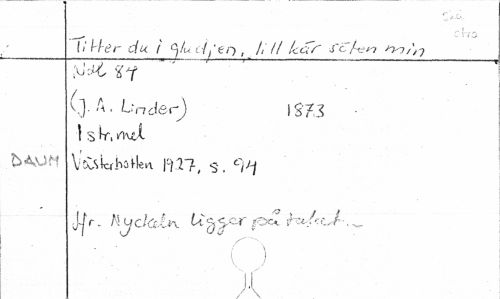 Titter du i gludjen, lill kär söten min
Nol 84
(J. A. Linder) 1873
1 str, mel
DAUM Västerbotten 1927, s. 94
Jfr. Nyckeln ligger på taket